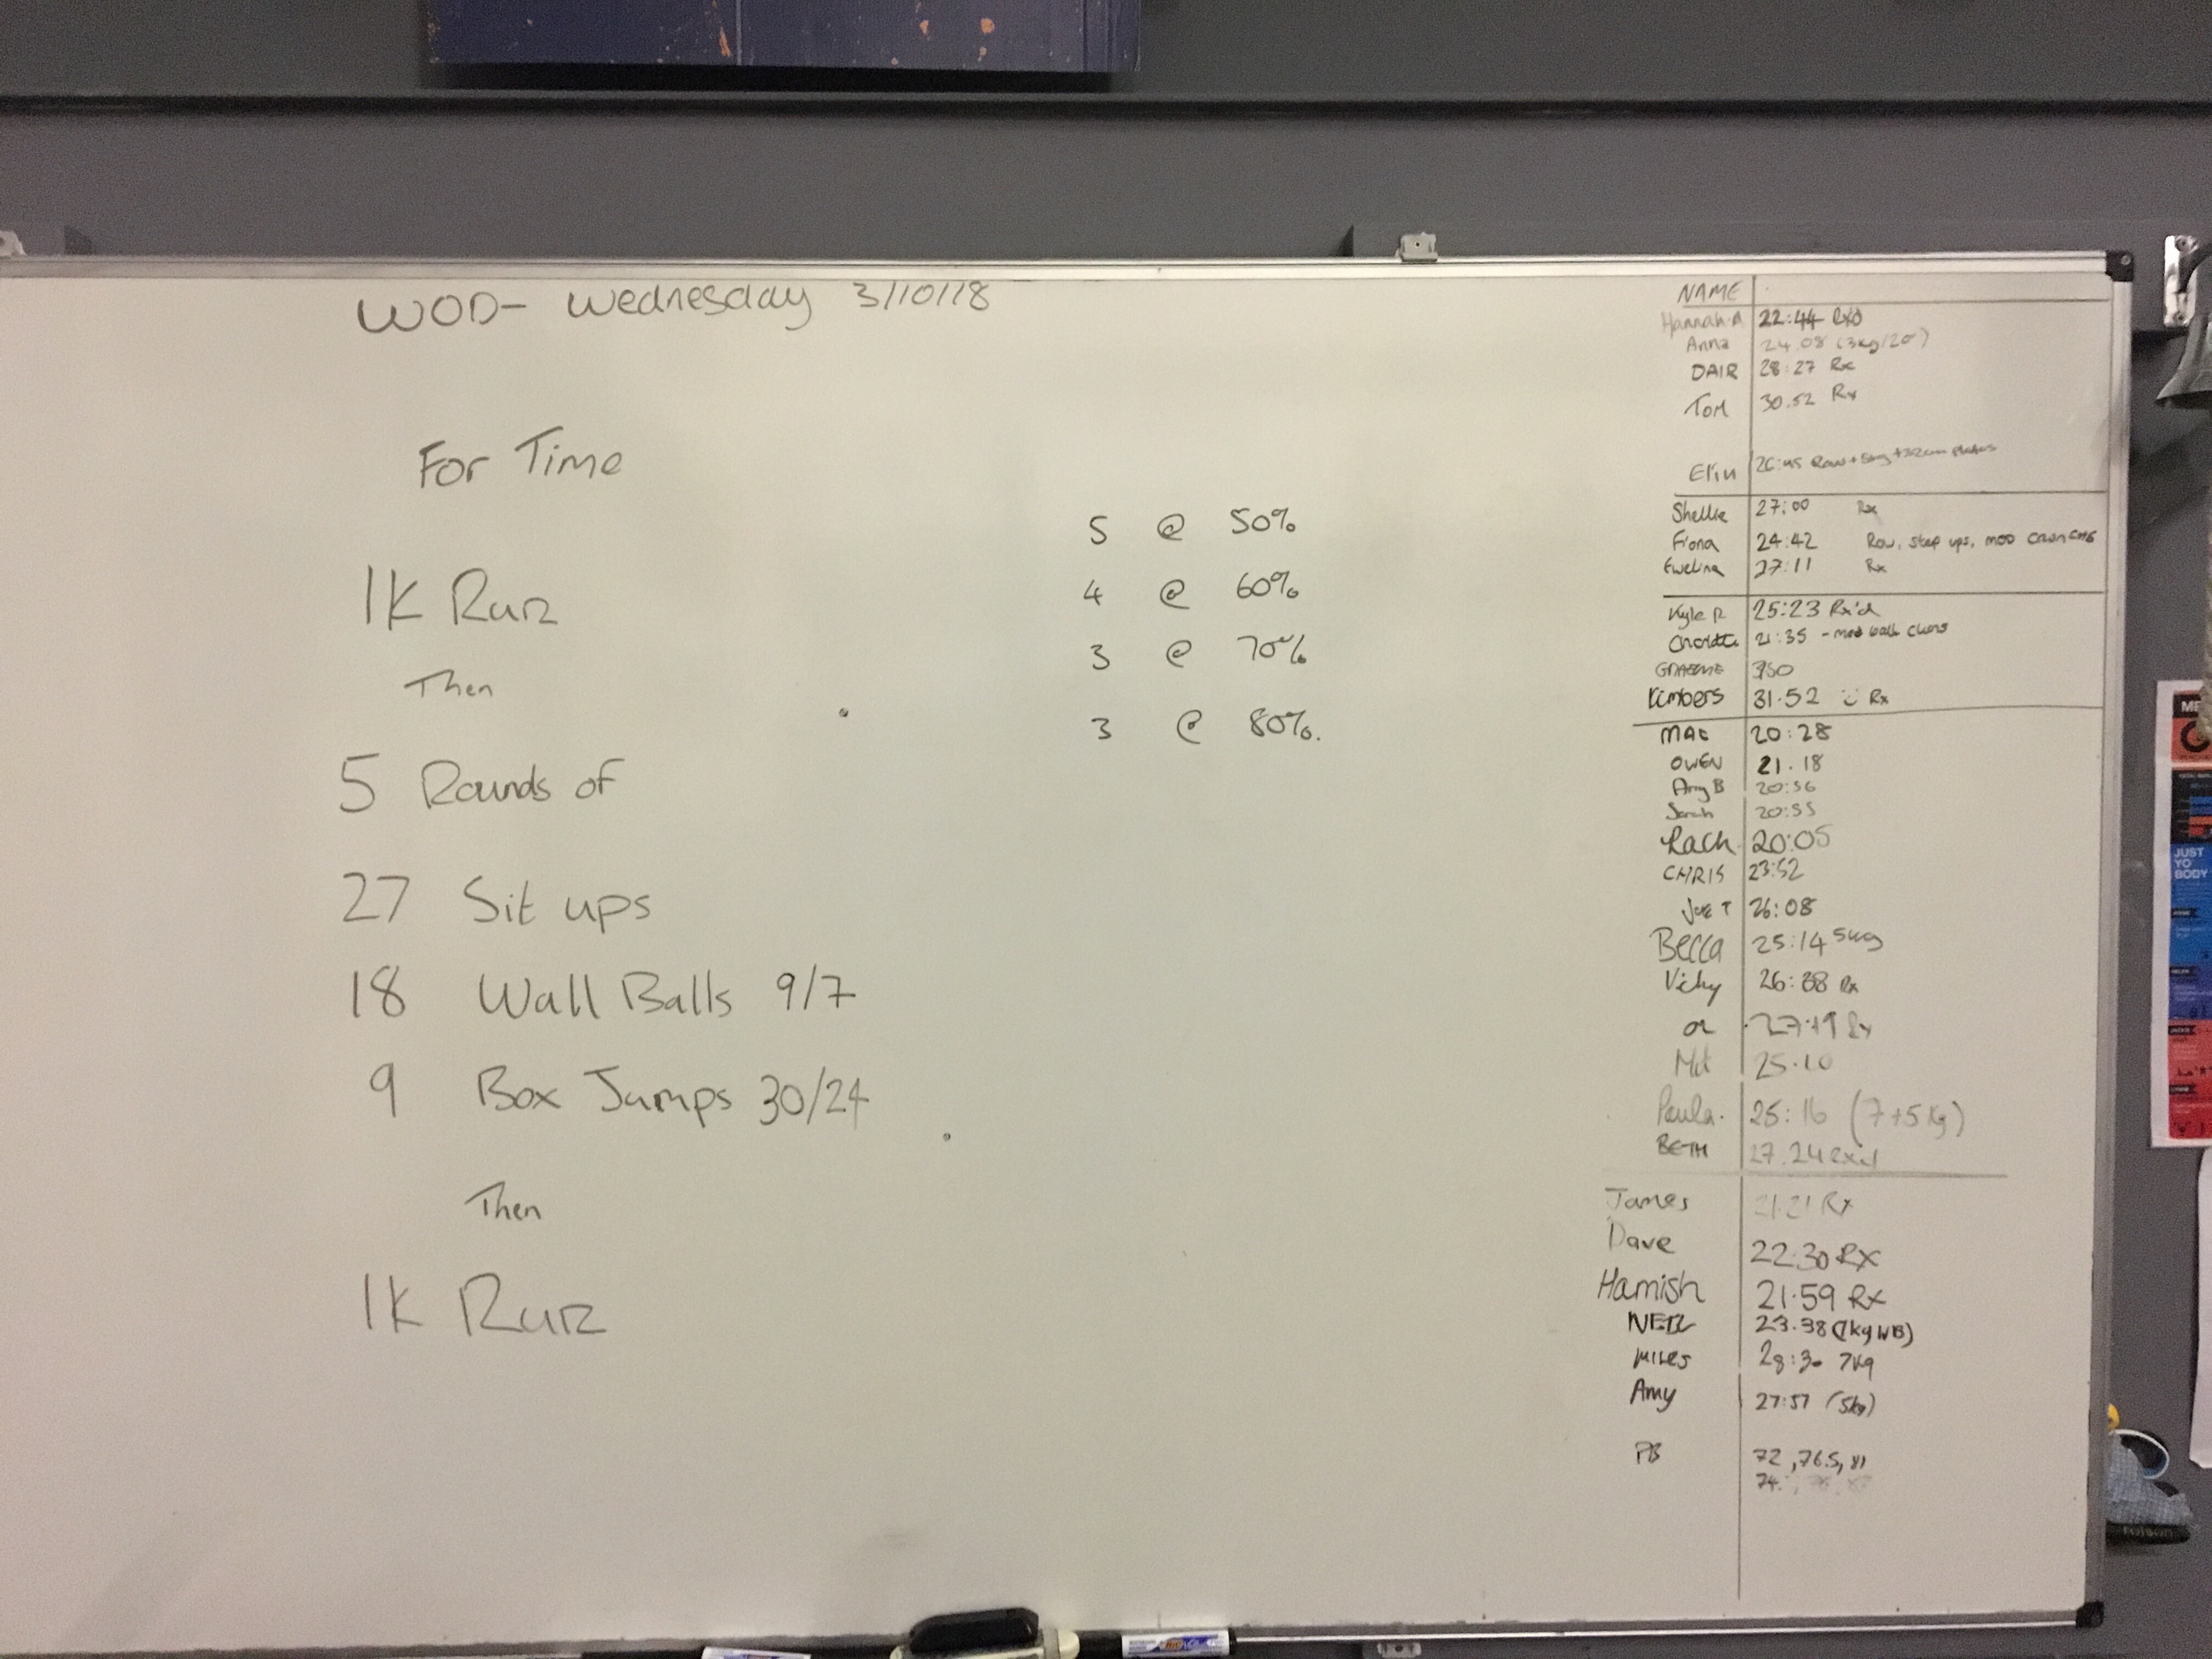 WOD- Wednesday 3/10/18
For Time
1K Run
Then
5 Rounds of
27 Sit ups
18 Wall Balls 9/7
9 Box Jumps 30/24
Then
1K Run
5 @ 50%
4 @ 60%
3 @ 70%
3 @ 80%.
NAME
Hannah A 22:44
Anna 24.08 (3kg/20")
DAIR 28:27 Rx
Tom 30.52 Rx
Elin 26:45 Row +
Shellie 27:00 Rx
Fiona 24:42 Row, step ups, mod
Ewelina 27:11 Rx
Kyle R 25:23 Rx'd
21:35 -
GRAEME
Kimbers 31.52 Rx
MAE 20:28
OWEN 21.18
Amy B 20:56
Sarah 20:55
Rach 20:05
CHRIS 23:52
Joe T 26:08
Becca 25:14 5kg
Vicky 26:38 Rx
Rx
25.10
Paula. 25:16 (7+5kg)
BETH 27.24 Rx'd
James 21.21 Rx
Dave 22.30 RX
Hamish 21.59 RX
NEIL 23.38 (7kg WB)
Miles 28:30 7kg
Amy 27:57 (5kg)
PB 72, 76.5, 81
74.
JUST
YO
BODY